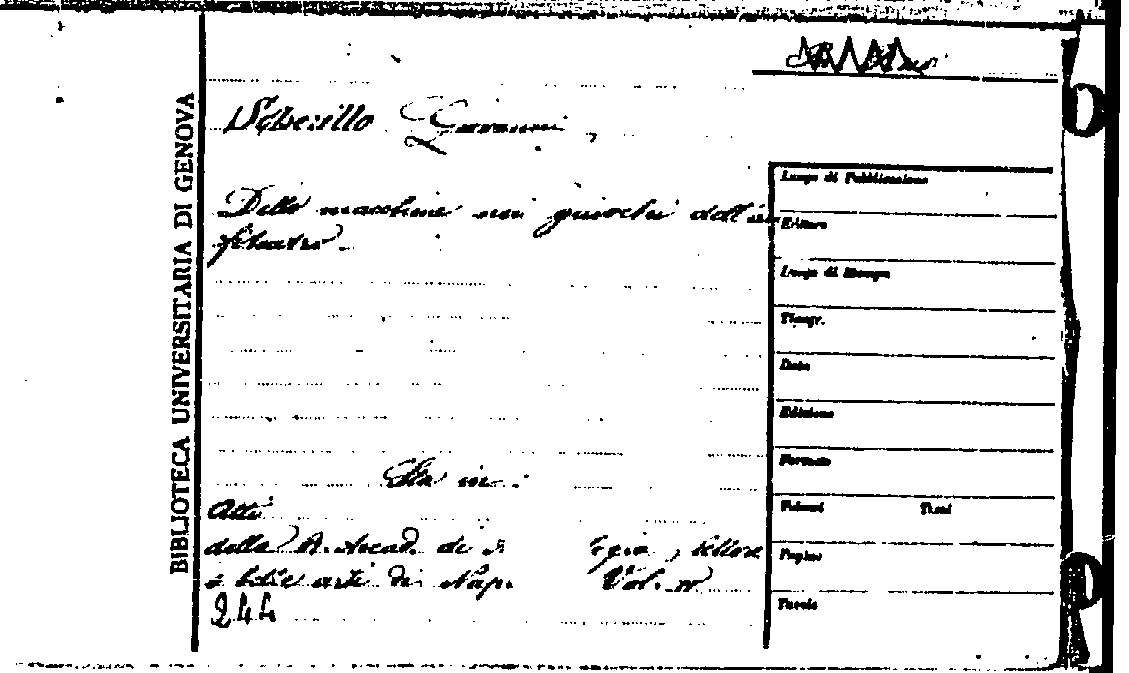 BIBLIOTECA UNIVERSITARIA DI GENOVA
Scherillo Giovanni,
Delle macchine nei giuochi dell'an
fiteatro.
Sta in:
Atti
della R. Accad. di lettere
e belle arti di Nap. Vol. IV
244
Luogo di Pubblicazione
Editore
Luogo di Stampa
Tipogr.
Data
Edizione
Formato
Volumi Tomi
Pagine
Tavole